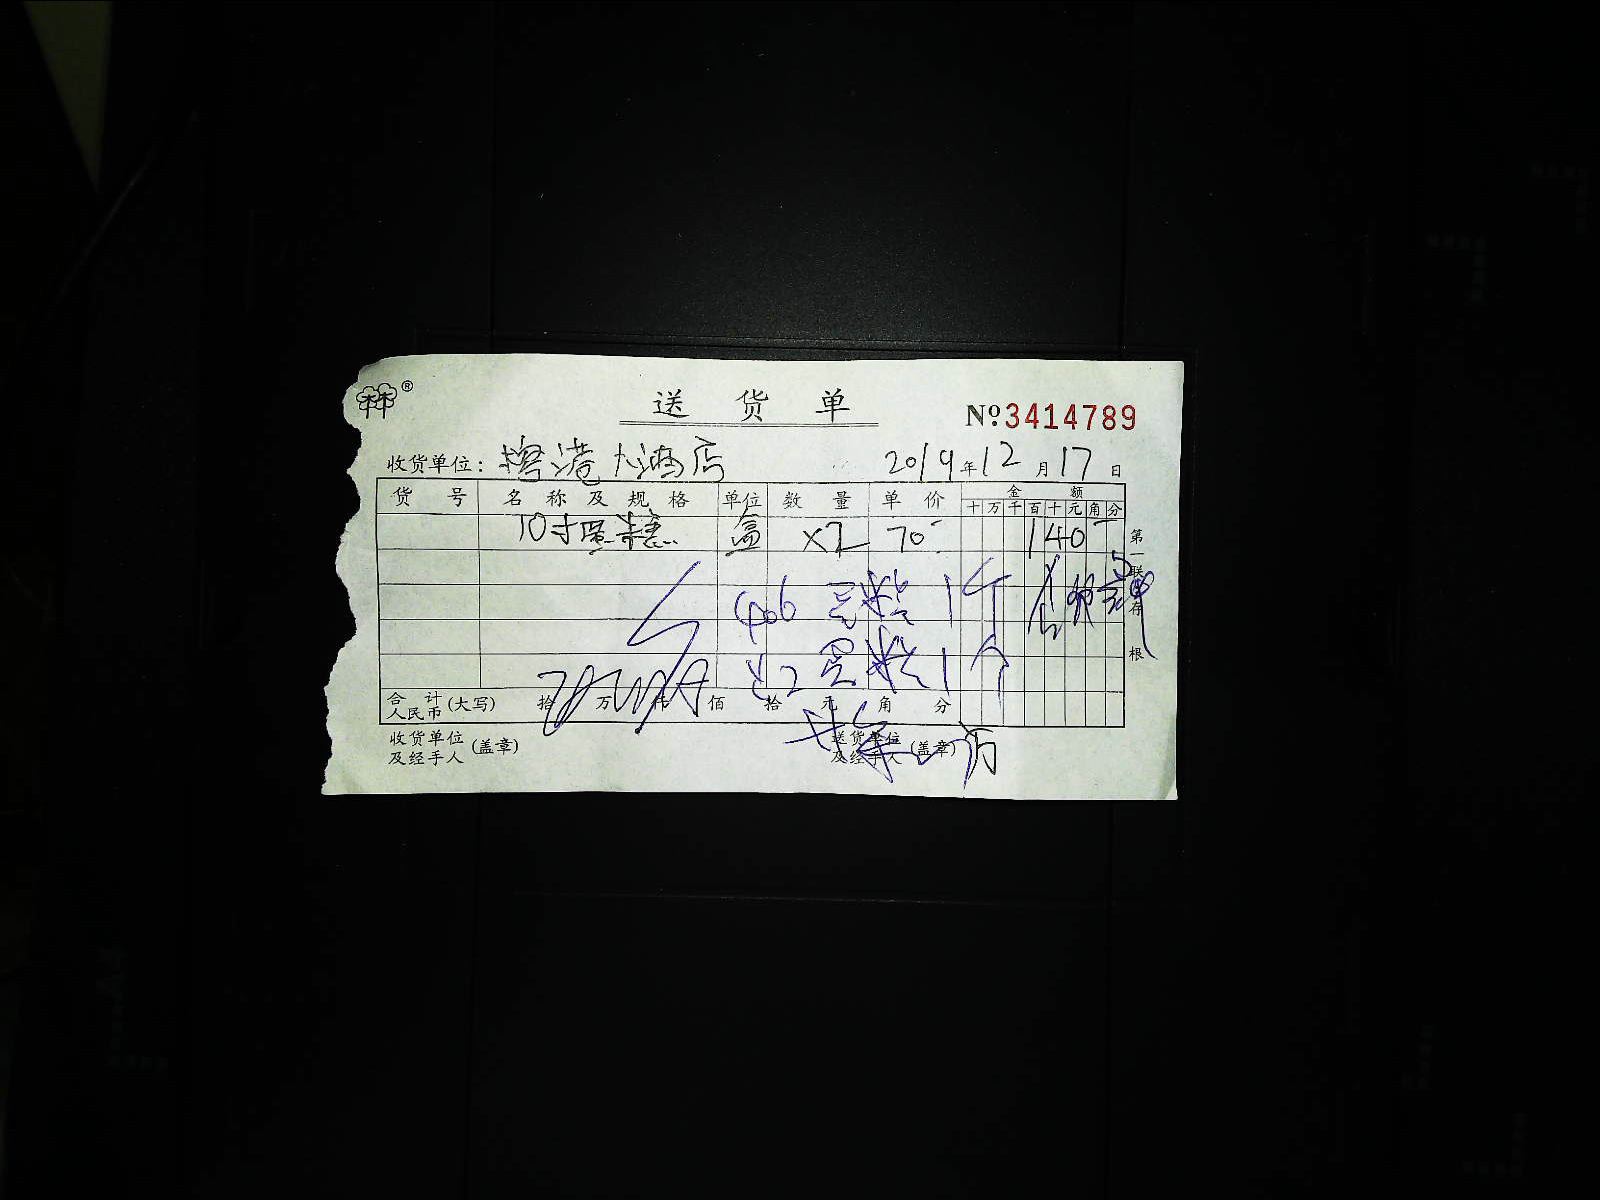 送 货 单
№3414789
收货单位：榕港大酒店 2019年12月17日
货 号 名 称 及 规 格 单位 数 量 单 价 金 额
十万千百十元角分
10寸蛋糕 盒 x2 70 140
第一联 存根
406 蛋糕 1个
蛋糕1个
合 计 人民币 (大写) 拾 万 仟 佰 拾 元 角 分
收货单位及经手人 (盖章) 送货单位及经手人 (盖章)